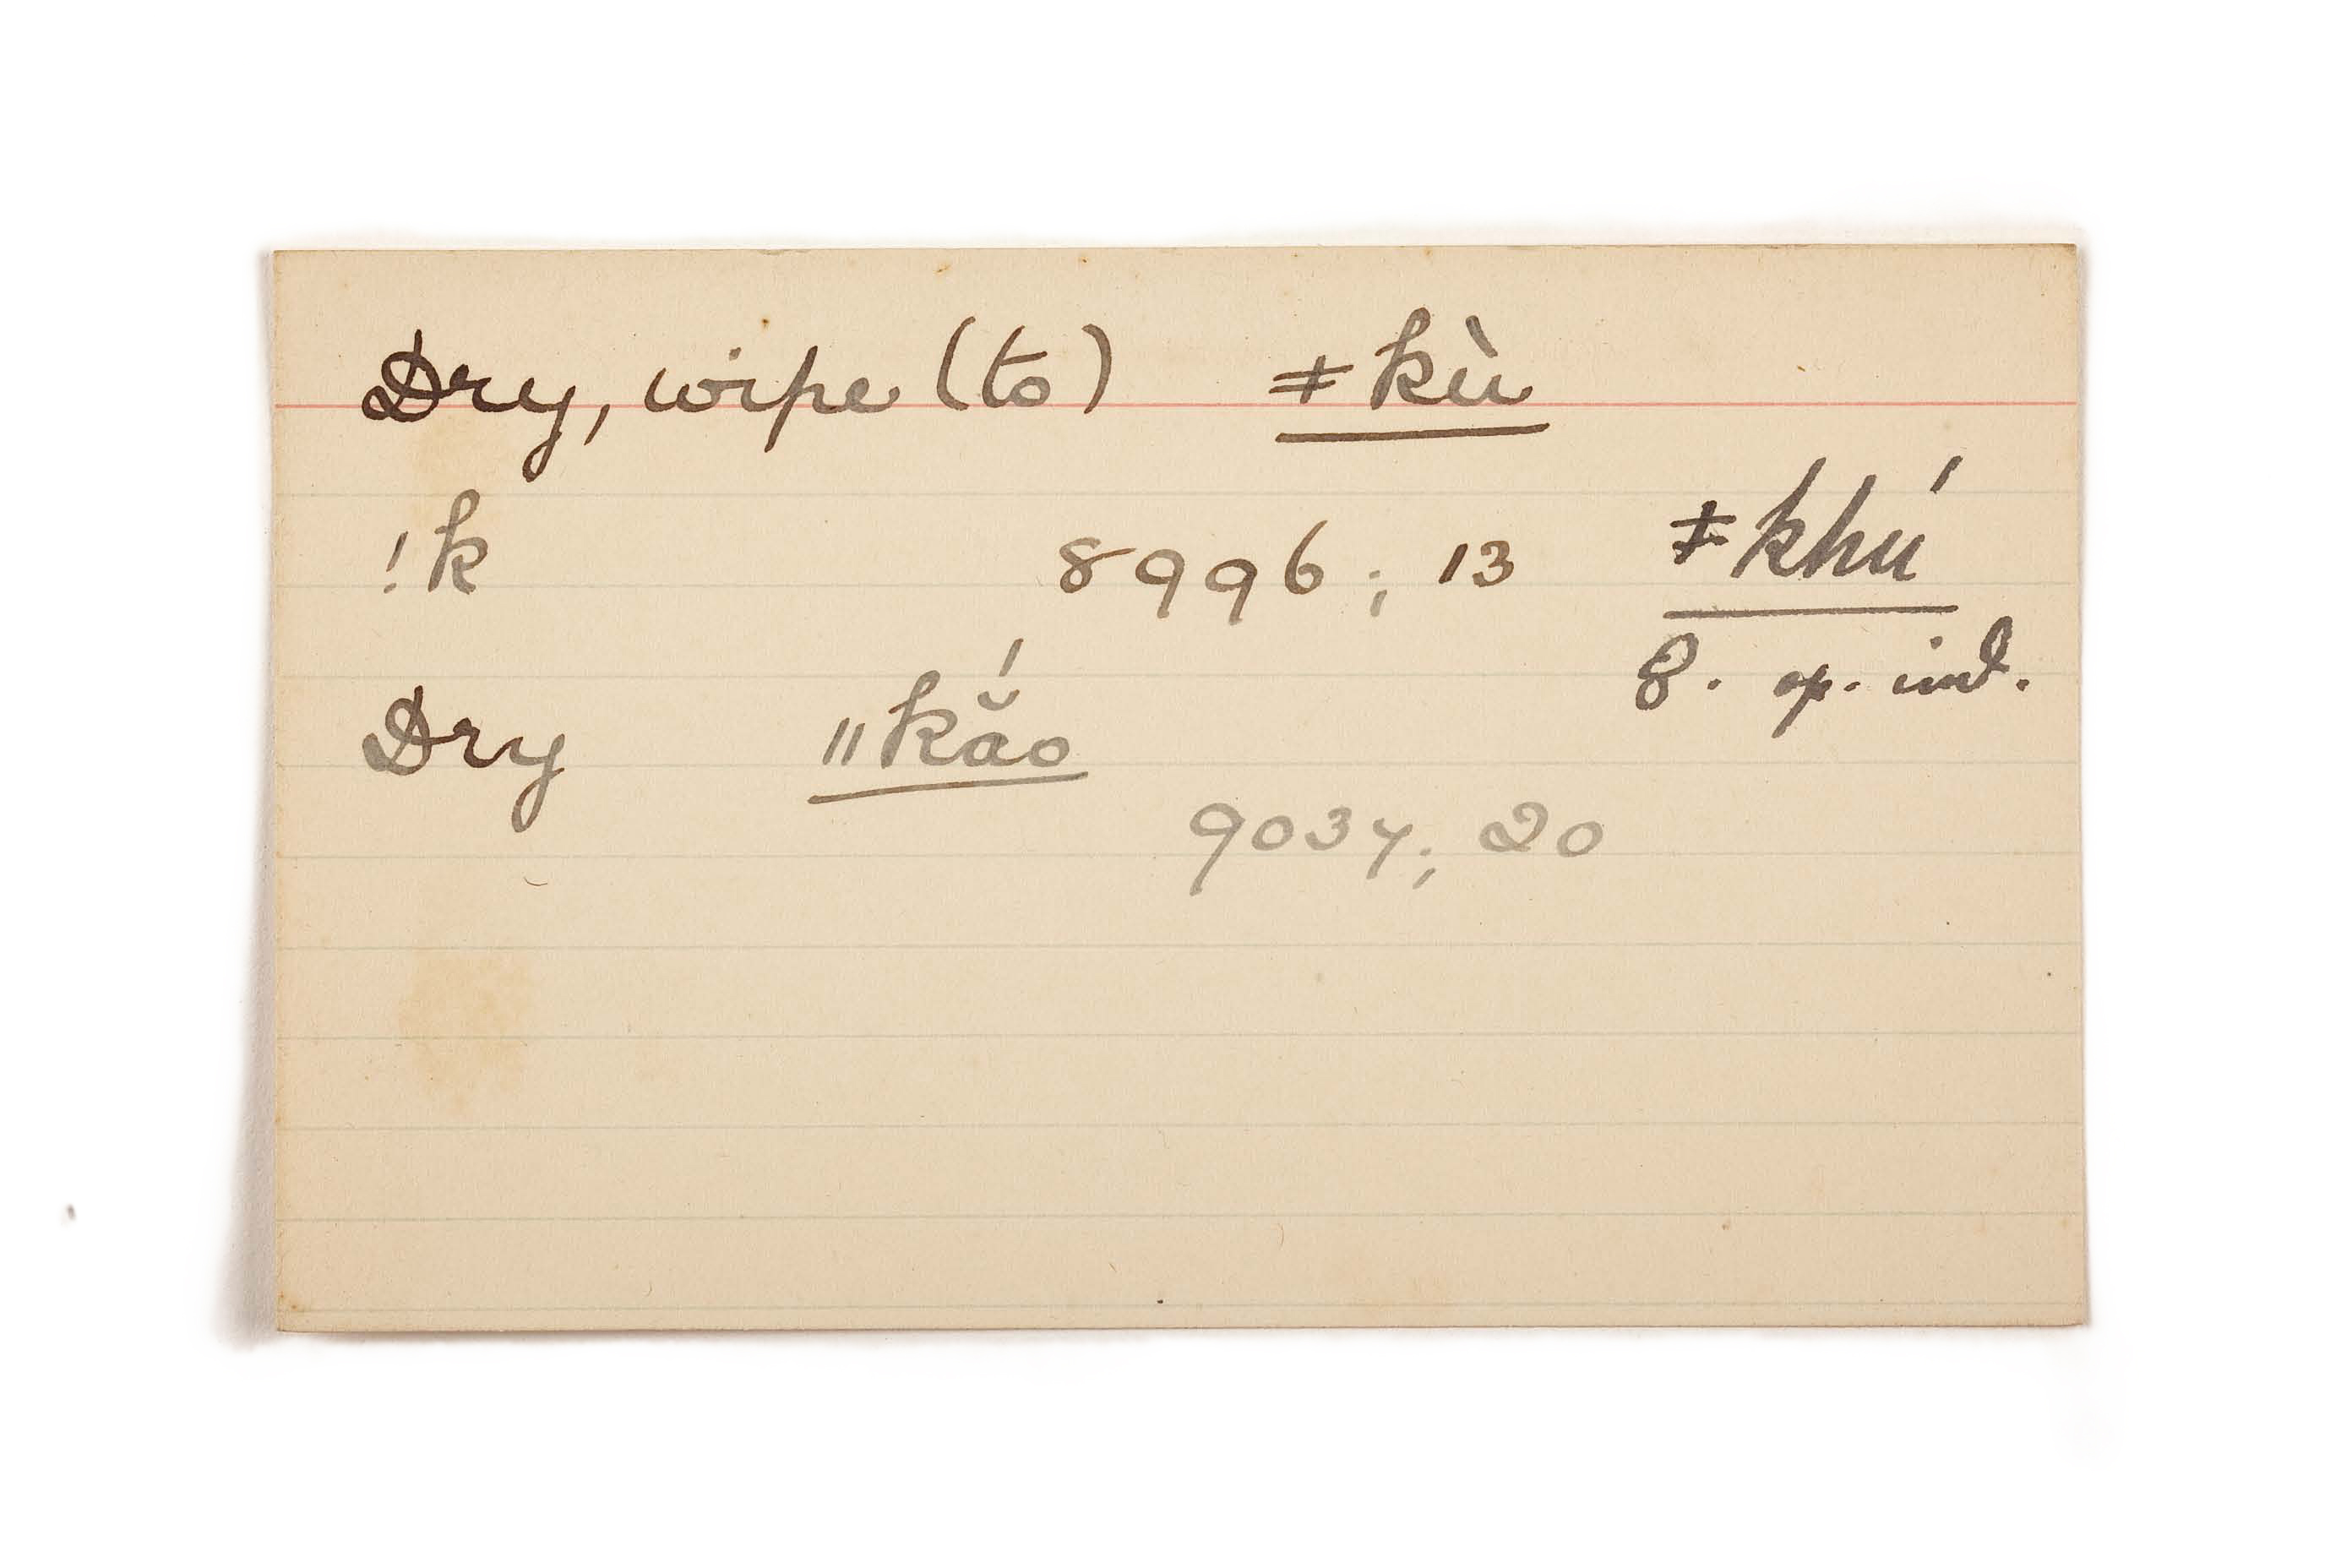 Dry, wipe (to) ǂkù
!k 8996; 13 ǂkhú
8. op. ind.
Dry ǁkắo
9037; 20